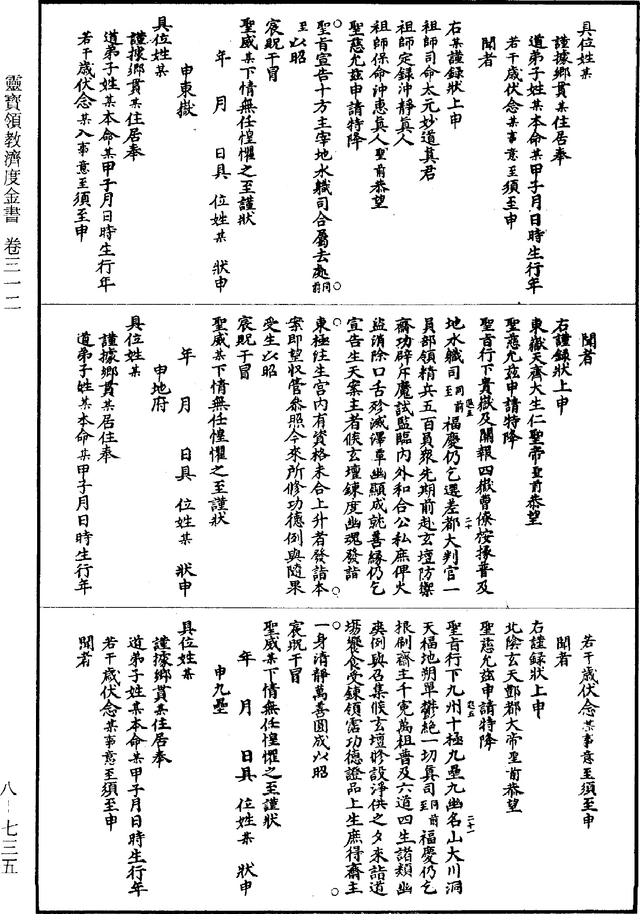 具位姓某
謹據鄉貫某住居奉
道弟子姓某本命某甲子月日時生行年
若干歲伏念某事意至須至申
聞者
右某謹錄狀上申
祖師司命太元妙道真君
祖師定錄沖靜真人
祖師保命沖惠真人聖前恭望
聖慈允茲申請特降
聖旨宣告十方主宰地水職司合屬去處同前
至以昭
宸貺干冒
聖威某下情無任惶懼之至謹狀
年 月 日具 位姓某 狀申
申東嶽
具位姓某
謹據鄉貫某住居奉
道弟子姓某本命某甲子月日時生行年
若干歲伏念某入事意至須至申
聞者
右謹錄狀上申
東嶽天齊大生仁聖帝聖前恭望
聖慈允茲申請特降
聖旨行下貴嶽及關報四嶽曹僚按掾普及
地水職司同前至福慶仍乞選差都大判官一
員部領精兵五百員衆先期前赴玄壇防禦
齋功辟斥魔試監臨內外和合公私庶俾火
盜消除口舌殄滅澤覃幽顯成就善緣仍乞
宣告生天案主者候玄壇鍊度幽魂發詣
東極往生宮內有資格未合上升者發詣本
案即望收管參照今來所修功德例與隨果
受生以昭
宸貺干冒
聖威某下情無任惶懼之至謹狀
年 月 日具 位姓某 狀申
申地府
具位姓某
謹據鄉貫某居住奉
道弟子姓某本命某甲子月日時生行年
若干歲伏念某事意至須至申
聞者
右謹錄狀上申
北陰玄天酆都大帝聖前恭望
聖慈允茲申請特降
聖旨行下九州十極九壘九幽名山大川洞
天福地朔單鬱絕一切真司同前至福慶仍乞
根刷齋主千寃萬祖普及六道四生諸類幽
爽例與召集候玄壇修設淨供之夕來詣道
場饗食受鍊領霑功德證品上生庶得齋主
一身清靜萬善圓成以昭
宸貺干冒
聖威某下情無任惶懼之至謹狀
年 月 日具 位姓某 狀申
申九壘
具位姓某
謹據鄉貫某住居奉
道弟子姓某本命某甲子月日時生行年
若干歲伏念某事意至須至申
聞者
靈寶領教濟度金書 卷三一二
八-七三五